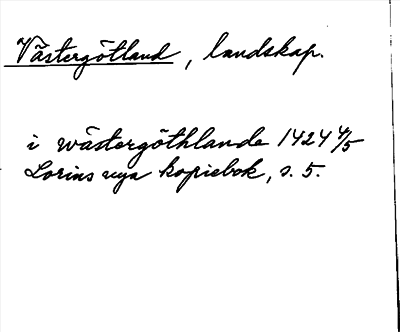 Västergötland, landskap.
i wästergöthlande 1424 4/5
Lorins nya kopiebok, s. 5.